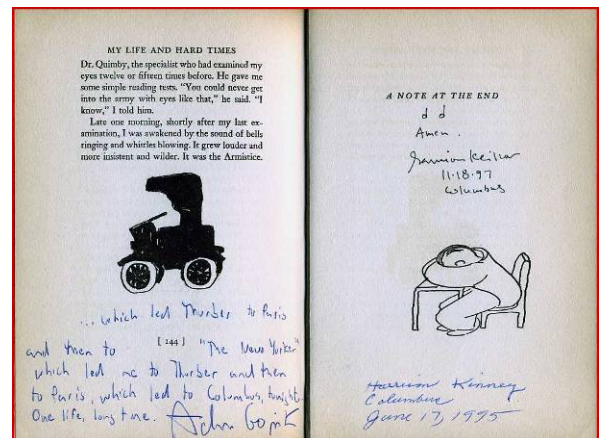 MY LIFE AND HARD TIMES
Dr. Quimby, the specialist who had examined my
eyes twelve or fifteen times before. He gave me
some simple reading tests. "You could never get
into the army with eyes like that," he said. "I
know," I told him.
Late one morning, shortly after my last ex-
amination, I was awakened by the sound of bells
ringing and whistles blowing. It grew louder and
more insistent and wilder. It was the Armistice.
... which led Thurber to Paris
[ 144 ]
and then to "The New Yorker"
which led me to Thurber and then
to Paris, which led to Columbus, tonight.
One life, long time. Adam Gopnik
A NOTE AT THE END
Amen.
Garrison Keillor
11.18.97
Columbus
Harrison Kinney
Columbus
June 17, 1995